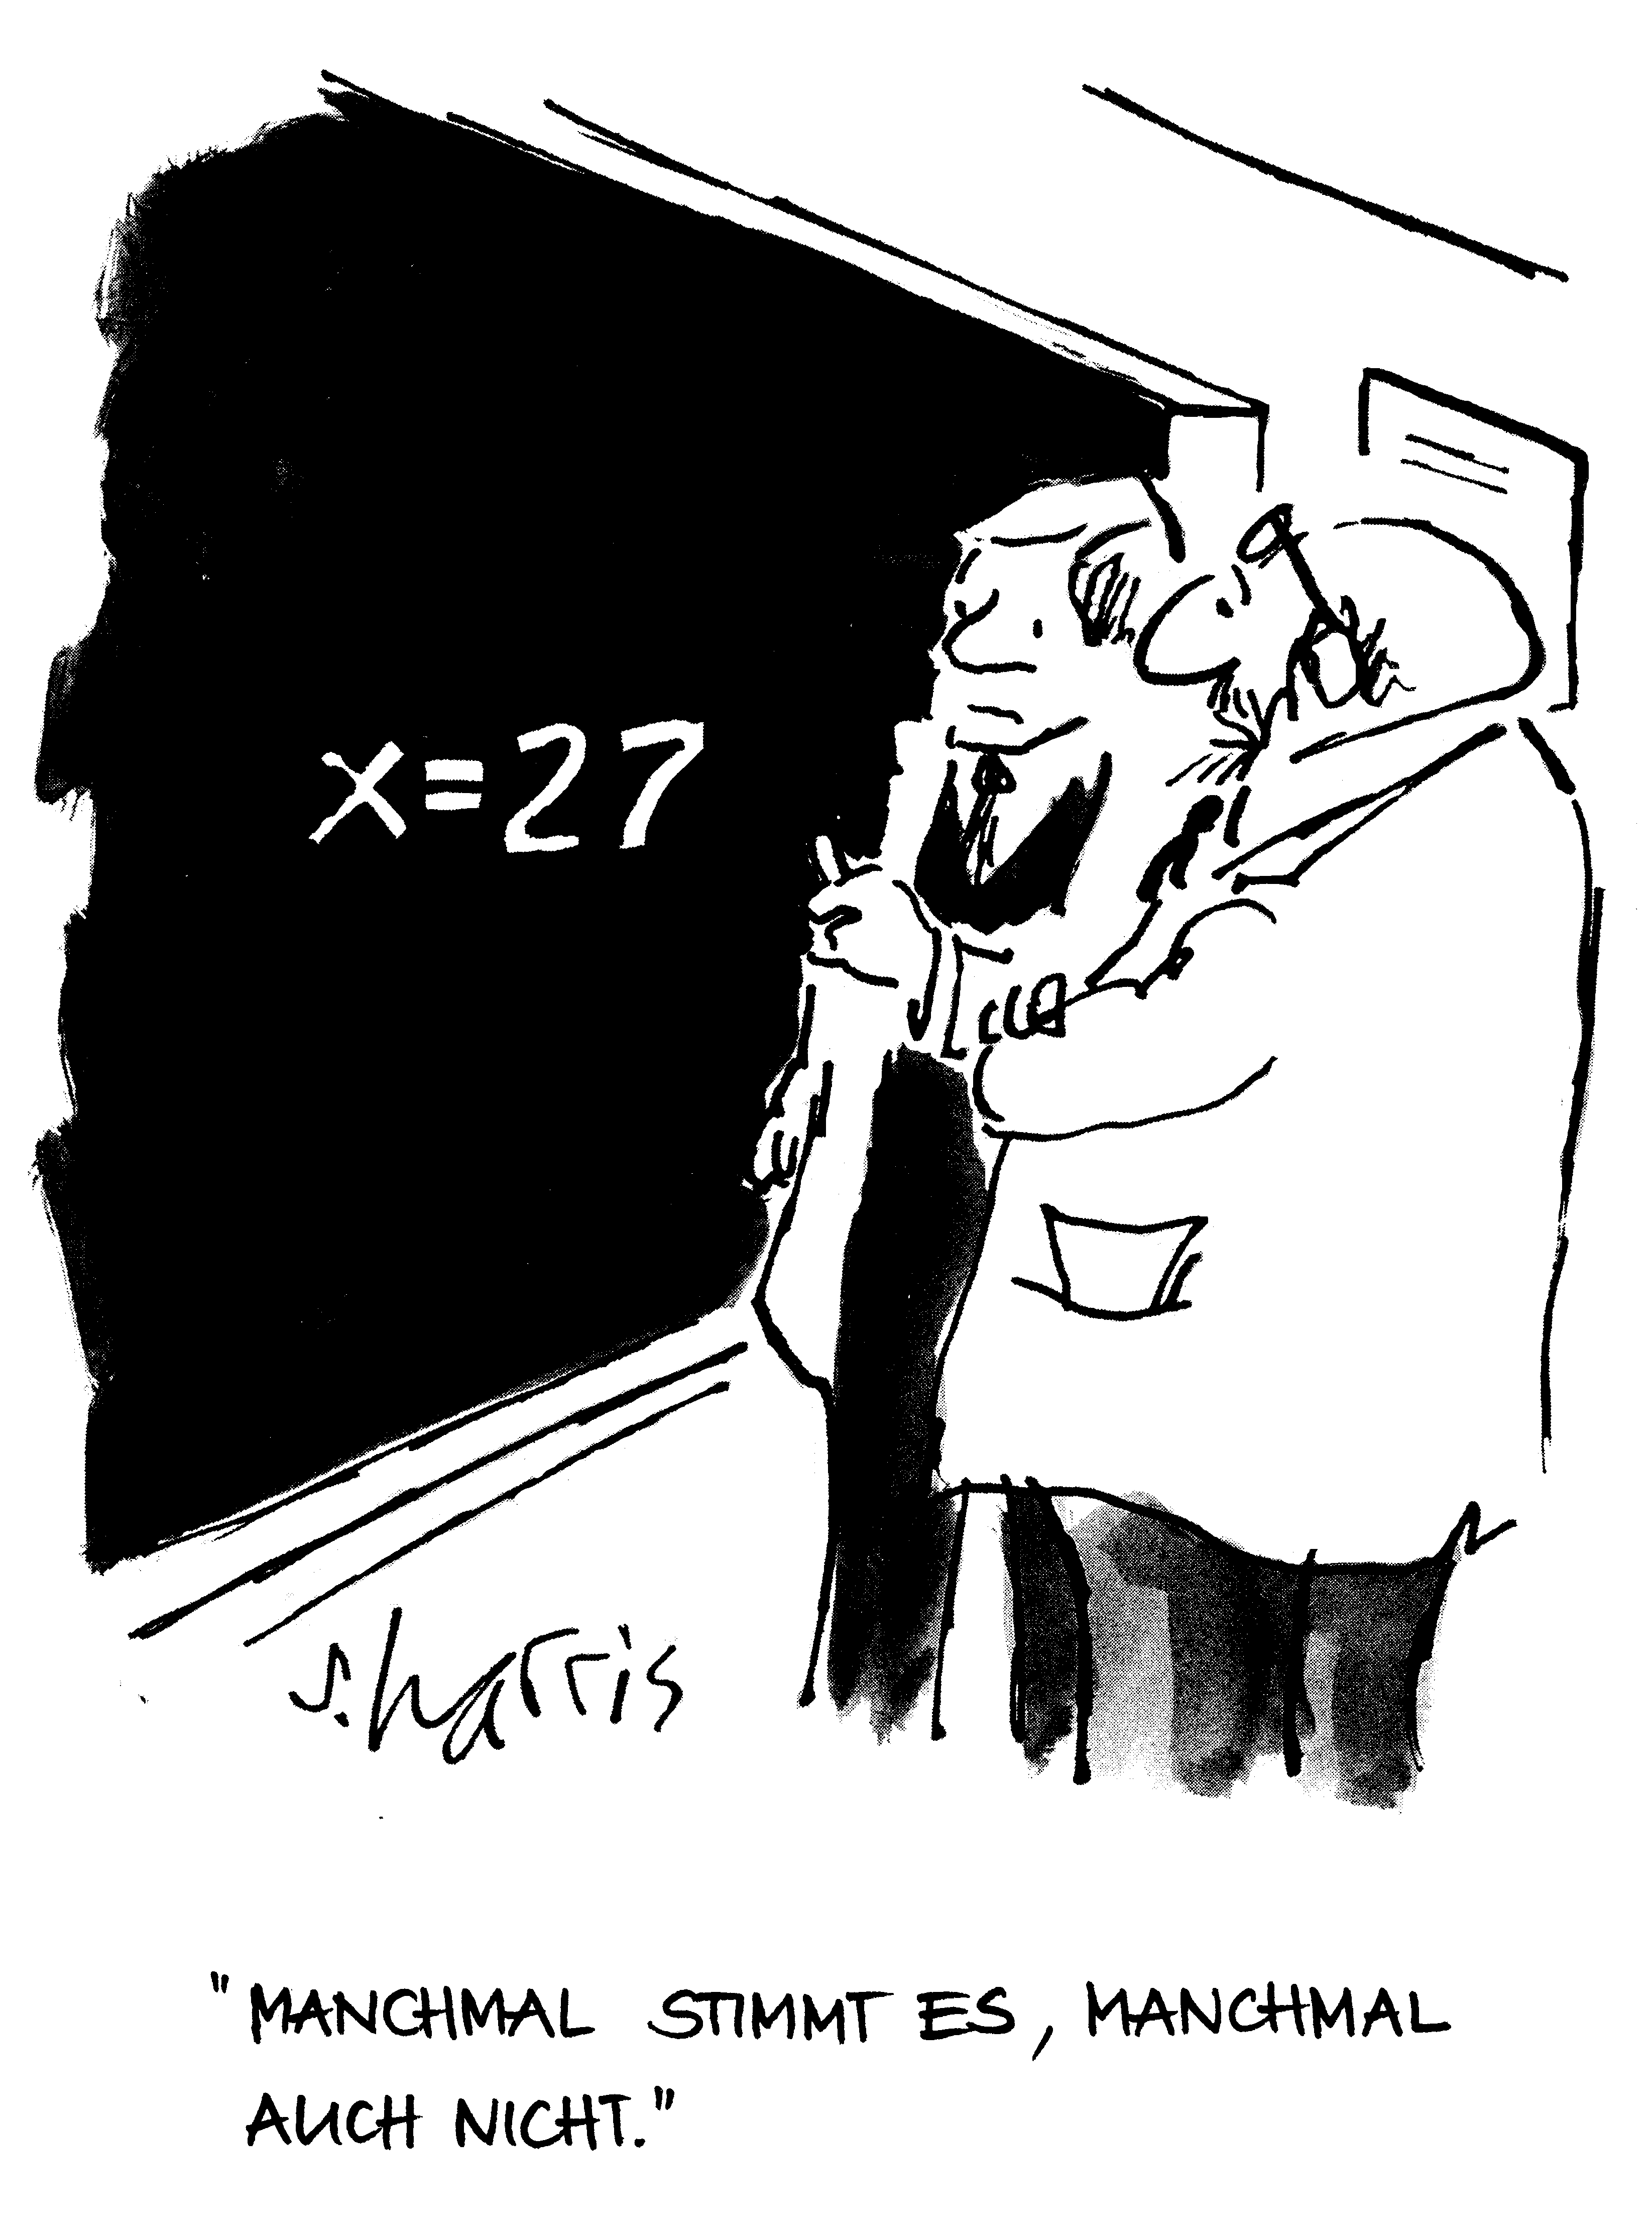 x=27
S. harris
"MANCHMAL STIMMT ES, MANCHMAL
AUCH NICHT."